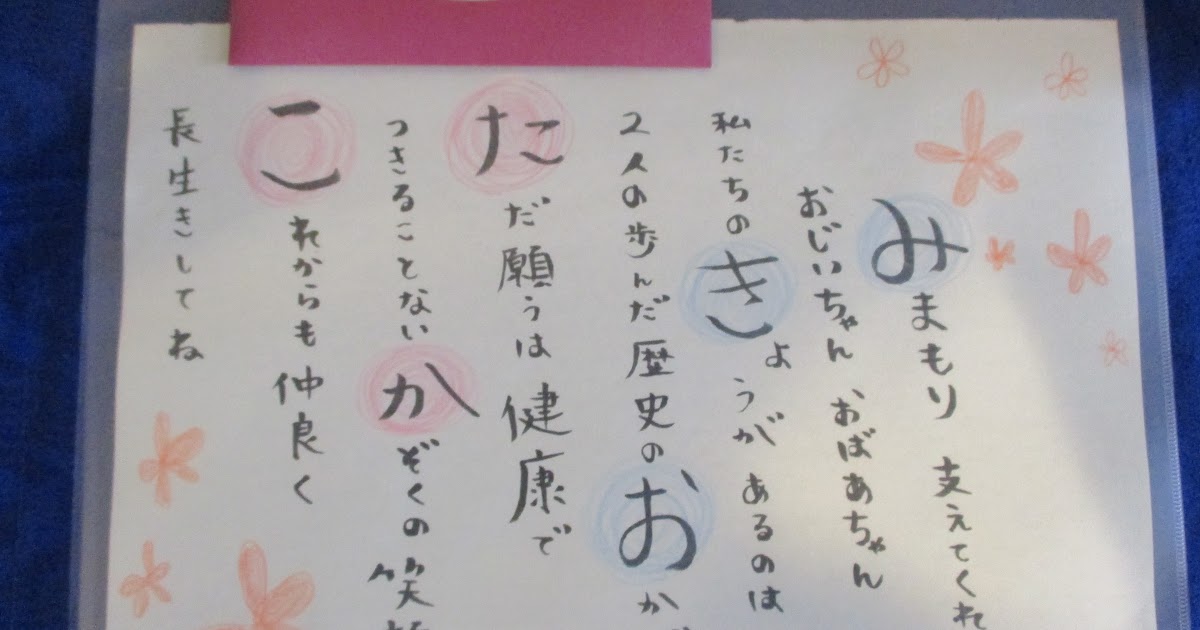 みまもり 支えてくれ
おじいちゃん おばあちゃん
私たちのきょうが あるのは
2人の歩んだ歴史のおか
ただ願うは健康で
つきることないかぞくの笑
これからも仲良く
長生きしてね